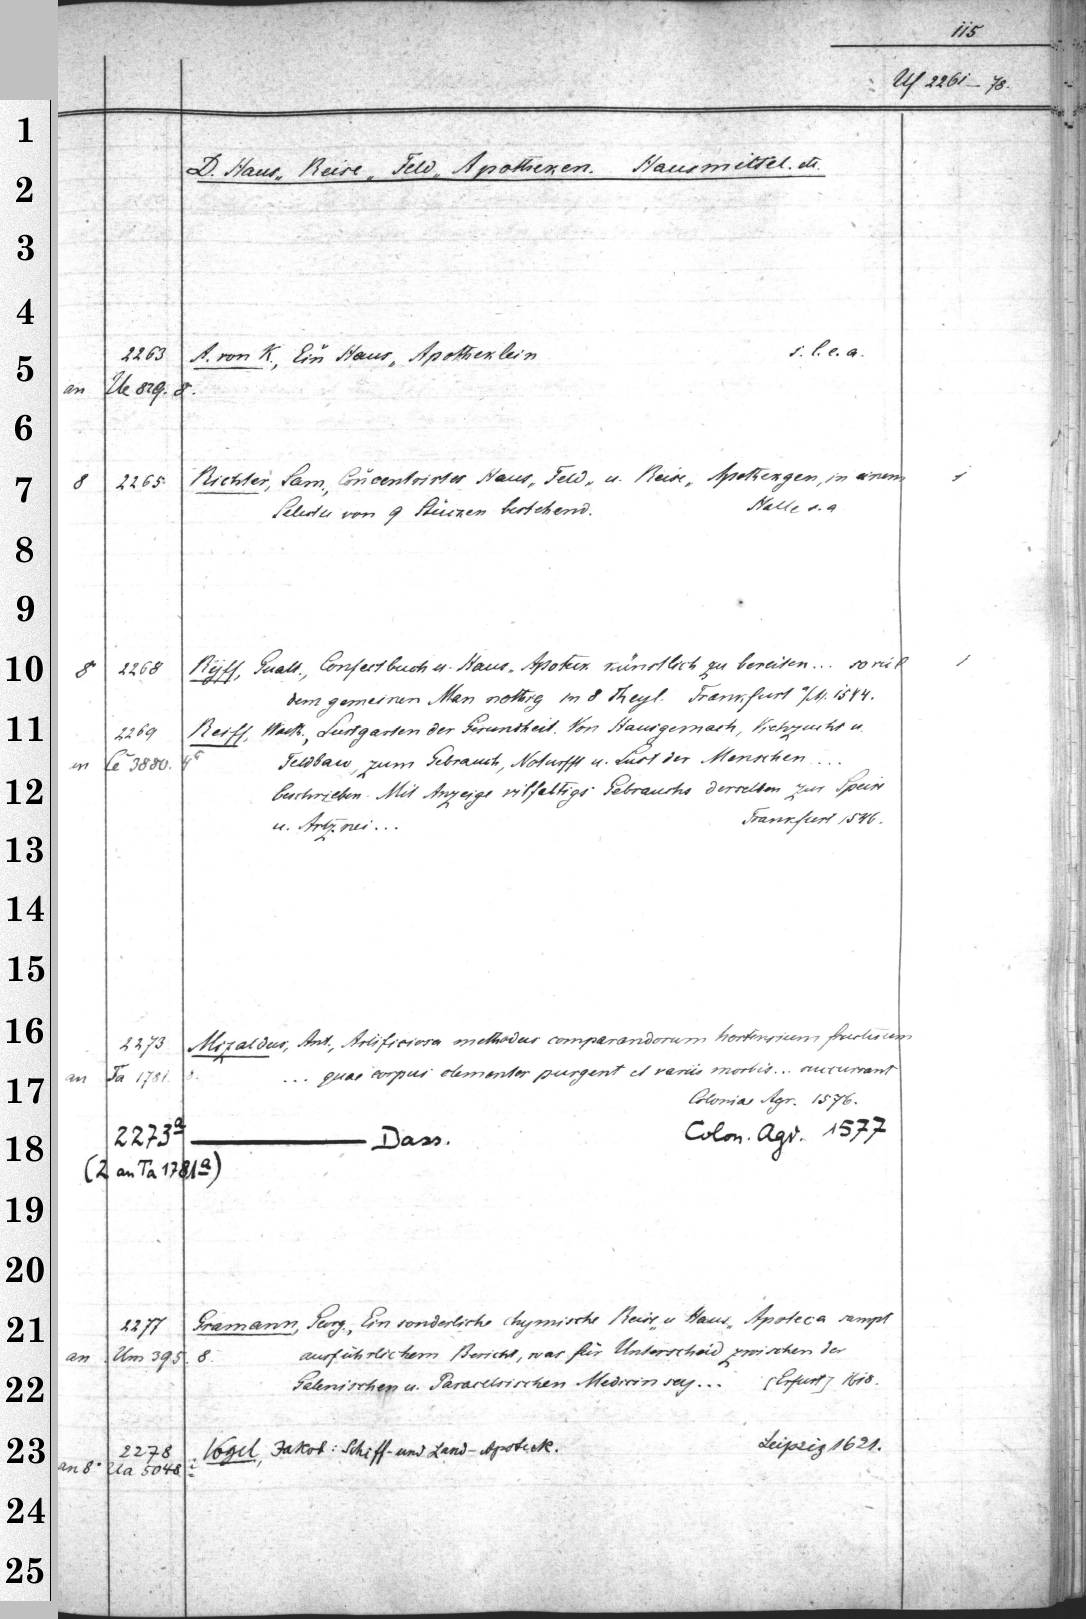 115
Uf 2261-78.
D. Haus„ Reise„ Feld„ Apotheken. Hausmittel. etc.
2263 A. von K., Ein Haus„ Apotheklein s. l. e. a.
an Ue 829. 8.
8 2265 Richter, Sam., Concentrirter Haus„ Feld„ u. Reise„ Apothergen, in einem 1
von 9 Stücken bestehend. Halle s. a
8° 2268 Ryff, Gualt., Confectbuch u. Haus„ Apothek künstlich zu bereiten... so viel 1
dem gemeinen Man nothig in 8 Theyl. Frankfurt a/M. 1544.
2269 Reiff, Walt., Lustgarten der Gesundheit. Von Hausgemach, Viehzucht u.
in Ce 3880. 4° Feldbau, zum Gebrauch, Noturfft u. Lust der Menschen....
beschrieben. Mit Anzeige vilfaltigs Gebrauchs derselben zur Speise
u. Artznei... Frankfurt 1546.
2273 Mizaldus, Ant., Artificiosa methodus comparandorum hortensium fructuum
an Ta 1781. 8. ... quae corpus clementer purgent et variis morbis... succurrant
Coloniae Agr. 1576.
2273a Dass. Colon. Agr. 1577
(2 an Ta 1781a)
2277 Gramann, Georg., Ein sonderliche chymische Reise„ u Haus„ Apoteca sampt
an Um 395. 8. ausführlichem Bericht, was für Unterscheid zwischen der
Galenischen u. Paracelsischen Medicin sey... [Erfurt] 1618.
2278 Vogel, Jakob: Schiff- und Land-Apoteck. Leipzig 1621.
an 8° Ua 5048
1
2
3
4
5
6
7
8
9
10
11
12
13
14
15
16
17
18
19
20
21
22
23
24
25